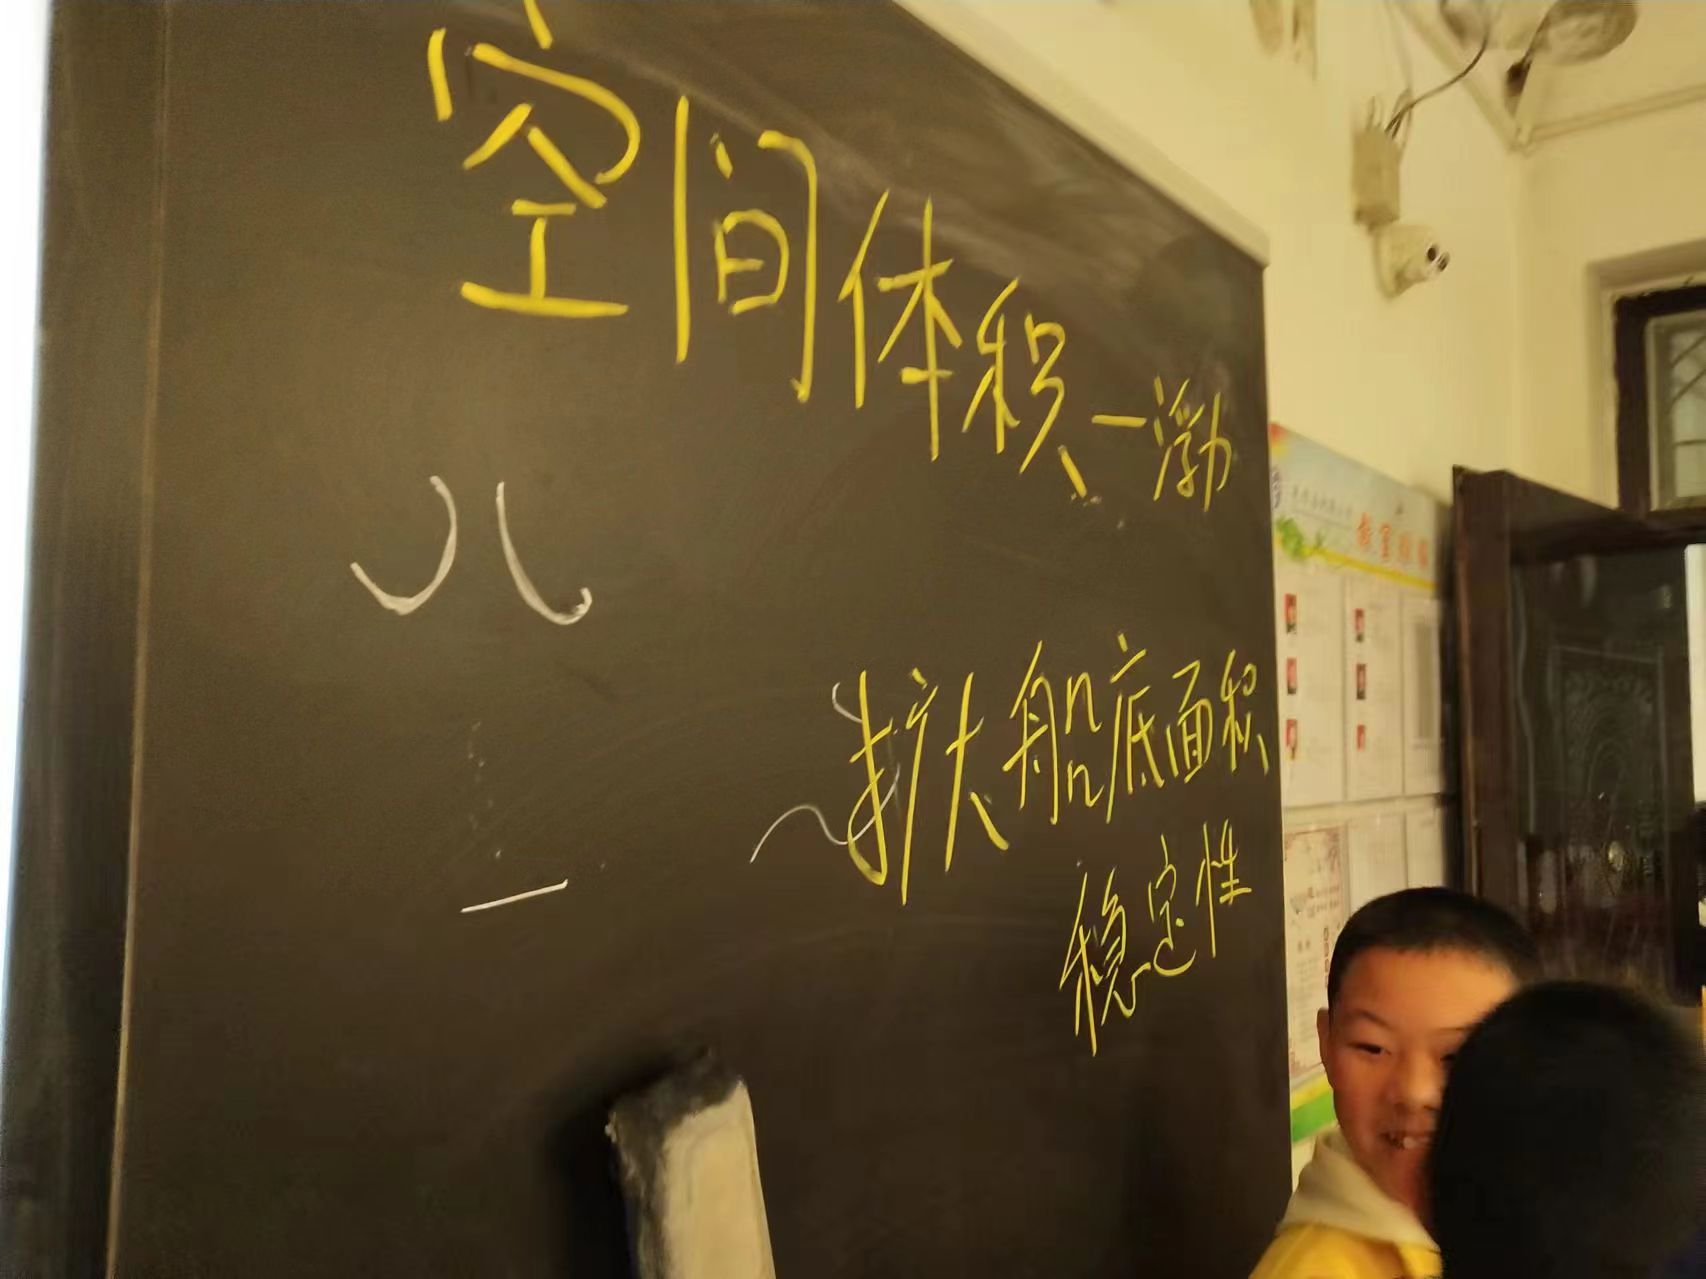 空间体积一浮力
扩大船底面积
稳定性